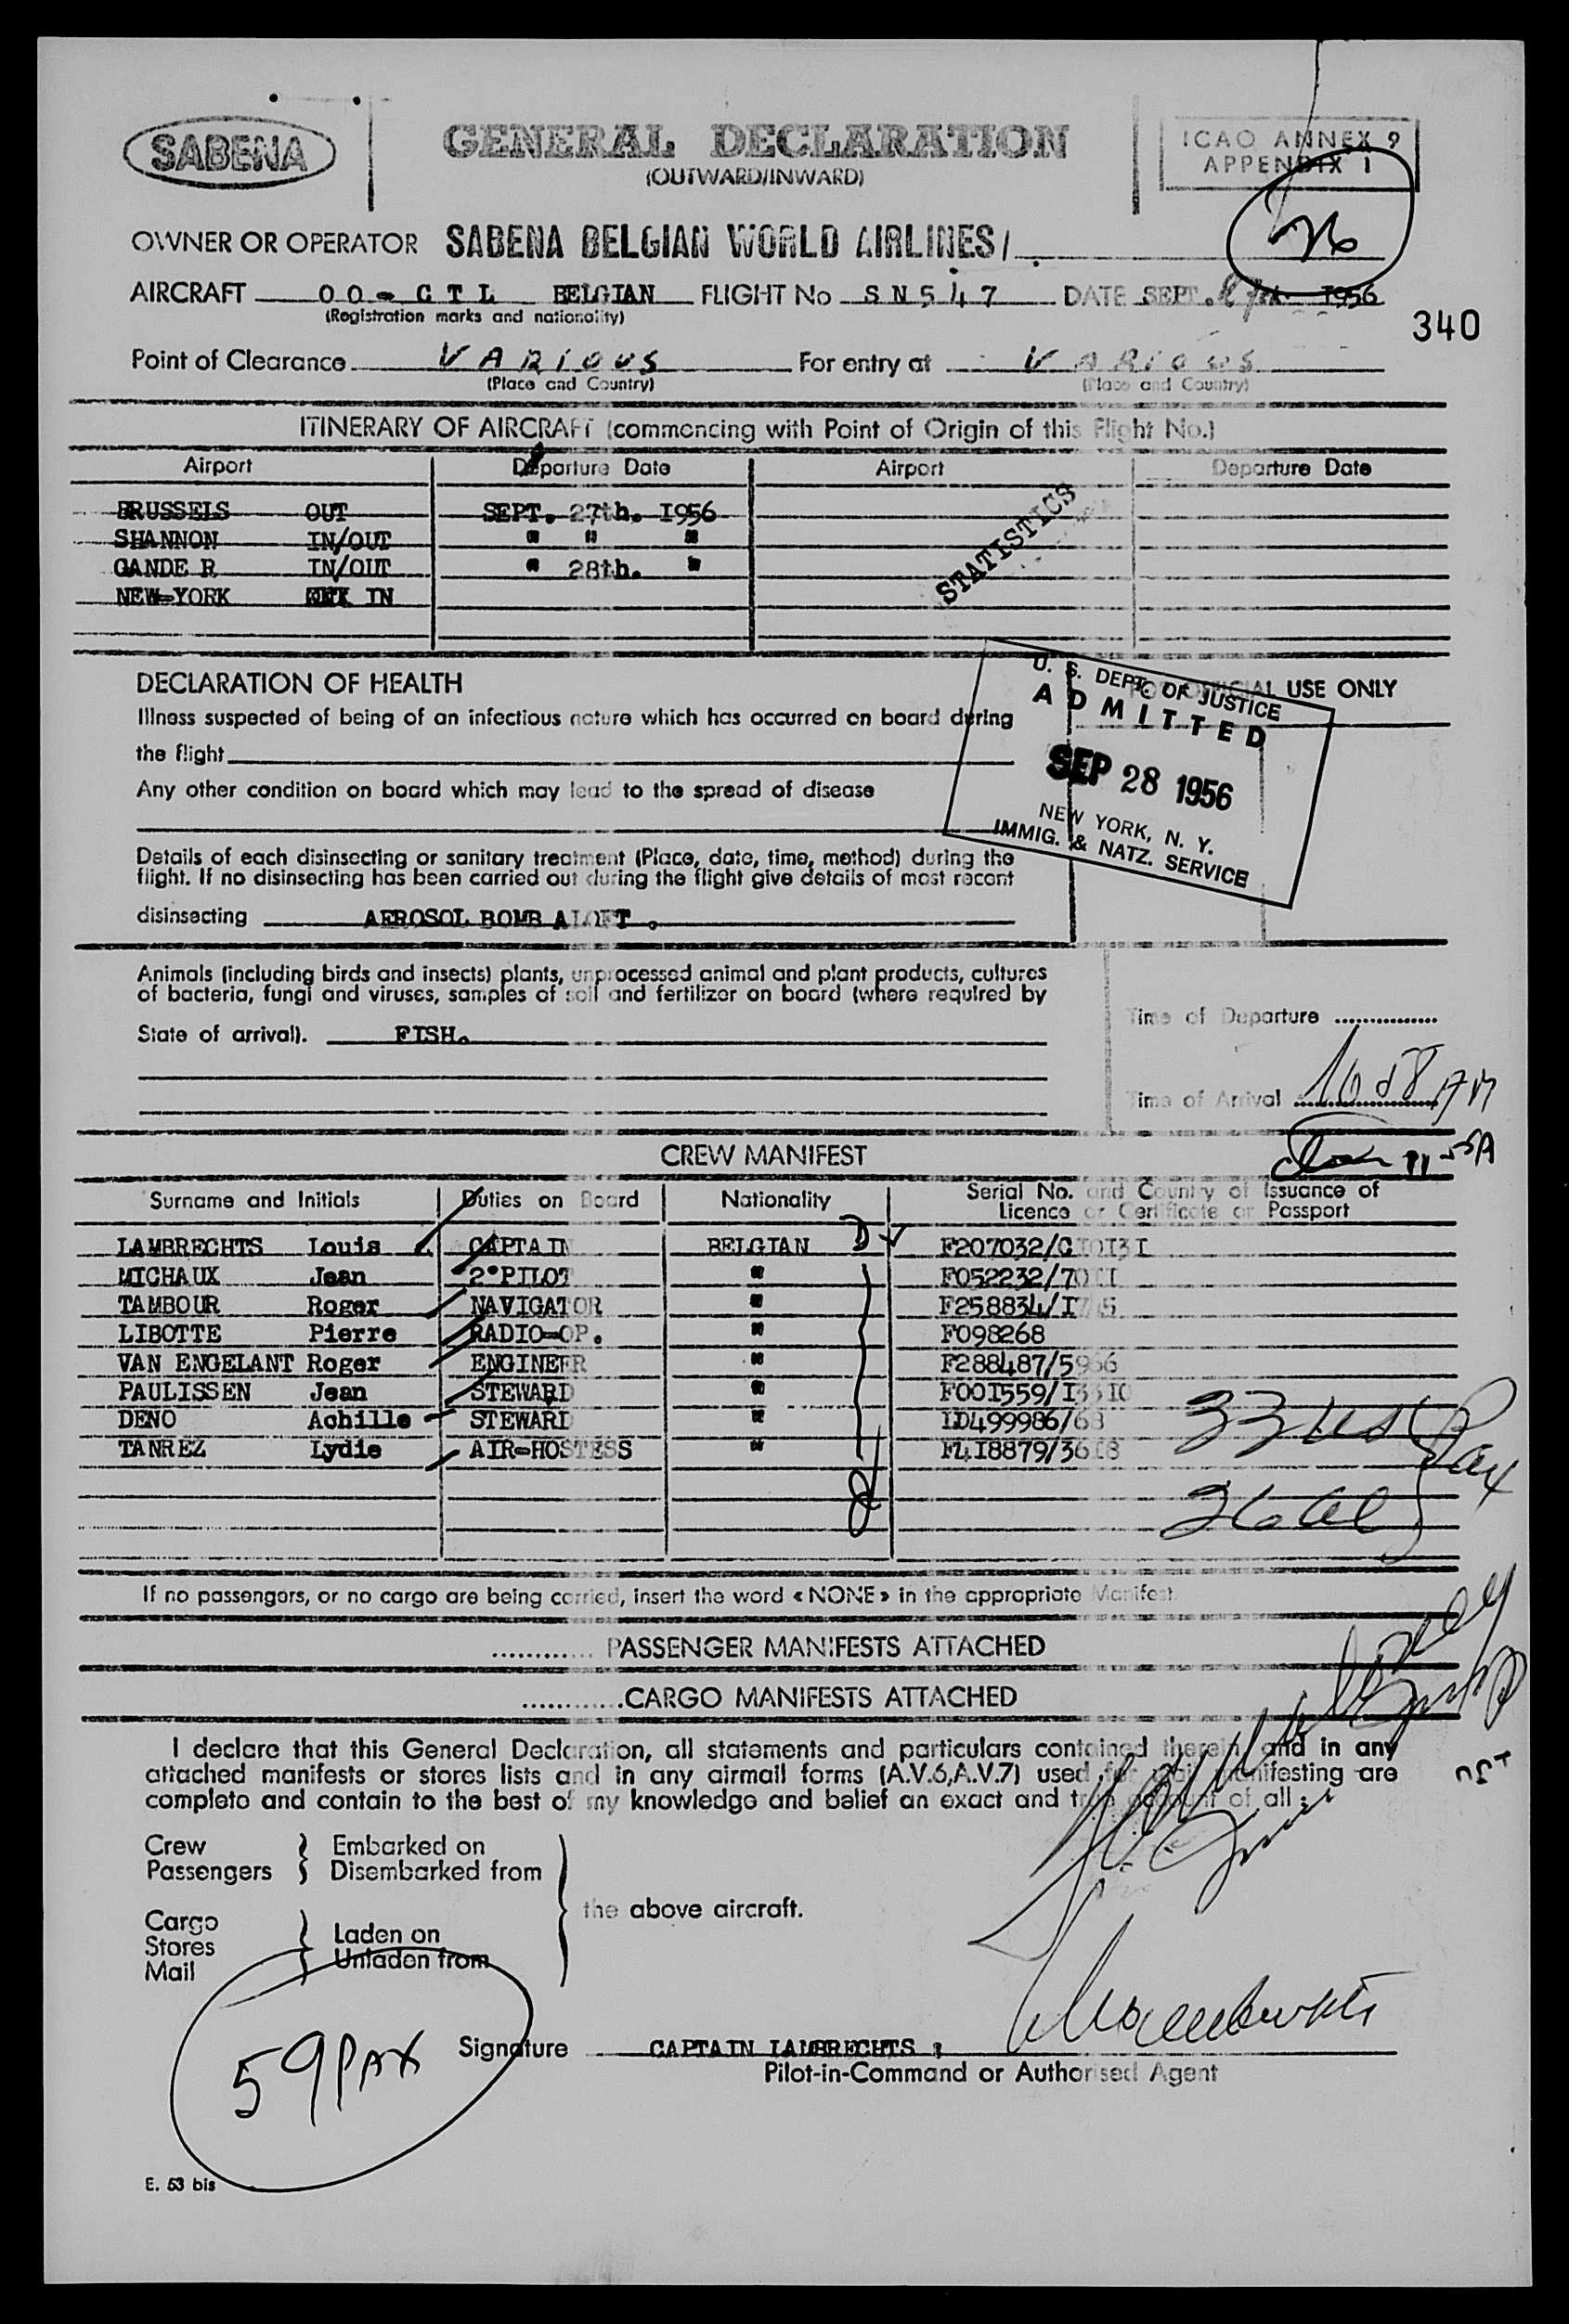 SABENA
GENERAL DECLARATION
(OUTWARD/INWARD)
ICAO ANNEX 9
APPENDIX 1
OWNER OR OPERATOR SABENA BELGIAN WORLD AIRLINES/
AIRCRAFT OO-CTL BELGIAN FLIGHT No SN547 DATE SEPT. 1956
(Registration marks and nationality)
340
Point of Clearance VARIOUS For entry at VARIOUS
(Place and Country) (Place and Country)
ITINERARY OF AIRCRAFT (commencing with Point of Origin of this Flight No.)
Airport Departure Date Airport Departure Date
BRUSSELS OUT SEPT. 27th. I956
SHANNON IN/OUT " " "
GANDER IN/OUT " 28th. "
NEW-YORK IN
STATISTICS
DECLARATION OF HEALTH
FOR OFFICIAL USE ONLY
Illness suspected of being of an infectious nature which has occurred on board during
the flight
Any other condition on board which may lead to the spread of disease
U. S. DEPT. OF JUSTICE
ADMITTED
SEP 28 1956
NEW YORK, N. Y.
IMMIG. & NATZ. SERVICE
Details of each disinsecting or sanitary treatment (Place, date, time, method) during the
flight. If no disinsecting has been carried out during the flight give details of most recent
disinsecting AEROSOL BOMB ALOFT .
Animals (including birds and insects) plants, unprocessed animal and plant products, cultures
of bacteria, fungi and viruses, samples of soil and fertilizer on board (where required by
State of arrival). FISH.
Time of Departure ...............
Time of Arrival 10 58 AM
CREW MANIFEST
Surname and Initials Duties on Board Nationality Serial No. and Country of Issuance of
Licence or Certificate or Passport
LAMBRECHTS Louis CAPTAIN BELGIAN F207032/C I0I3I
MICHAUX Jean 2°PILOT " F052232/70
TAMBOUR Roger NAVIGATOR " F258834/I
LIBOTTE Pierre RADIO-OP. " F098268
VAN ENGELANT Roger ENGINEER " F288487/5966
PAULISSEN Jean STEWARD " F00I559/I33I0
DENO Achille STEWARD " ID499986/68
TANREZ Lydie AIR-HOSTESS " F4I8879/36
33 us
26 al
Pax
If no passengers, or no cargo are being carried, insert the word « NONE » in the appropriate Manifest.
............ PASSENGER MANIFESTS ATTACHED
............CARGO MANIFESTS ATTACHED
I declare that this General Declaration, all statements and particulars contained therein, and in any
attached manifests or stores lists and in any airmail forms (A.V.6,A.V.7) used for mail manifesting are
complete and contain to the best of my knowledge and belief an exact and true account of all :
Crew Embarked on
Passengers Disembarked from
the above aircraft.
Cargo
Stores Laden on
Mail Unladen from
59 PAX
Signature CAPTAIN LAMBRECHTS :
Pilot-in-Command or Authorised Agent
E. 53 bis